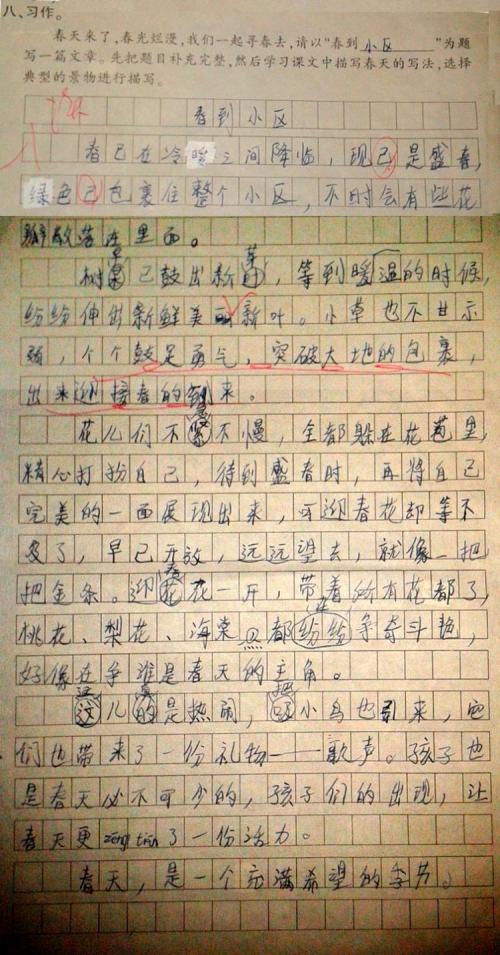 八、习作。
春天来了,春光烂漫,我们一起寻春去,请以“春到小区”为题
写一篇文章。先把题目补充完整,然后学习课文中描写春天的写法,选择
典型的景物进行描写。
春到小区
春已在冷暖之间降临,现已是盛春,
绿色已包裹住整个小区,不时会有些花
瓣散落在里面。
树已鼓出新芽,等到暖温的时候,
纷纷伸出新鲜美丽新叶。小草也不甘示
弱,个个鼓足勇气,突破大地的包裹,
出来迎接春的到来。
花儿们不紧不慢,全都躲在花苞里,
精心打扮自己,待到盛春时,再将自己
完美的一面展现出来,可迎春花却等不
及了,早已开放,远远望去,就像一把
把金条。迎春花一开,带着所有花都了,
桃花、梨花、海棠都纷纷争奇斗艳,
好像在争谁是春天的主角。
这儿真是热闹,把小鸟也引来,它
们也带来了一份礼物——歌声。孩子也
是春天必不可少的,孩子们的出现,让
春天更zēng tiān了一份活力。
春天,是一个充满希望的季节。